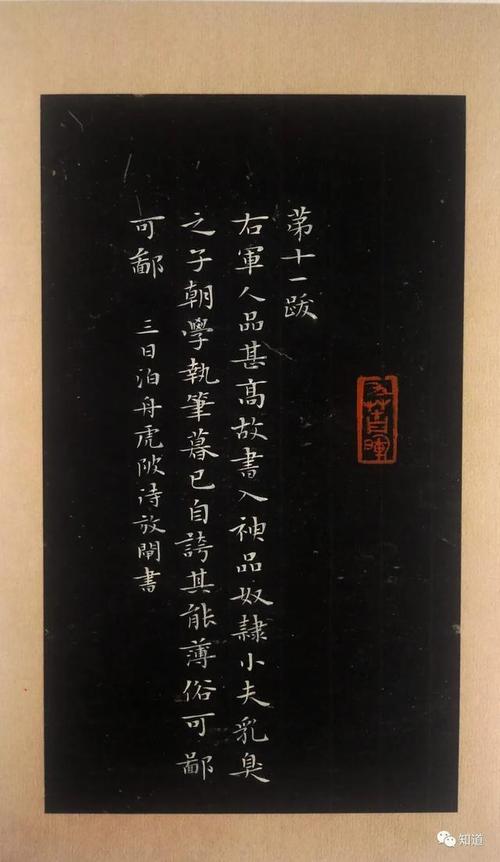 第十一跋
右軍人品甚高故書入神品奴隸小夫乳臭
之子朝學執筆暮已自誇其能薄俗可鄙
可鄙　三日泊舟虎陂待放閘書
知道